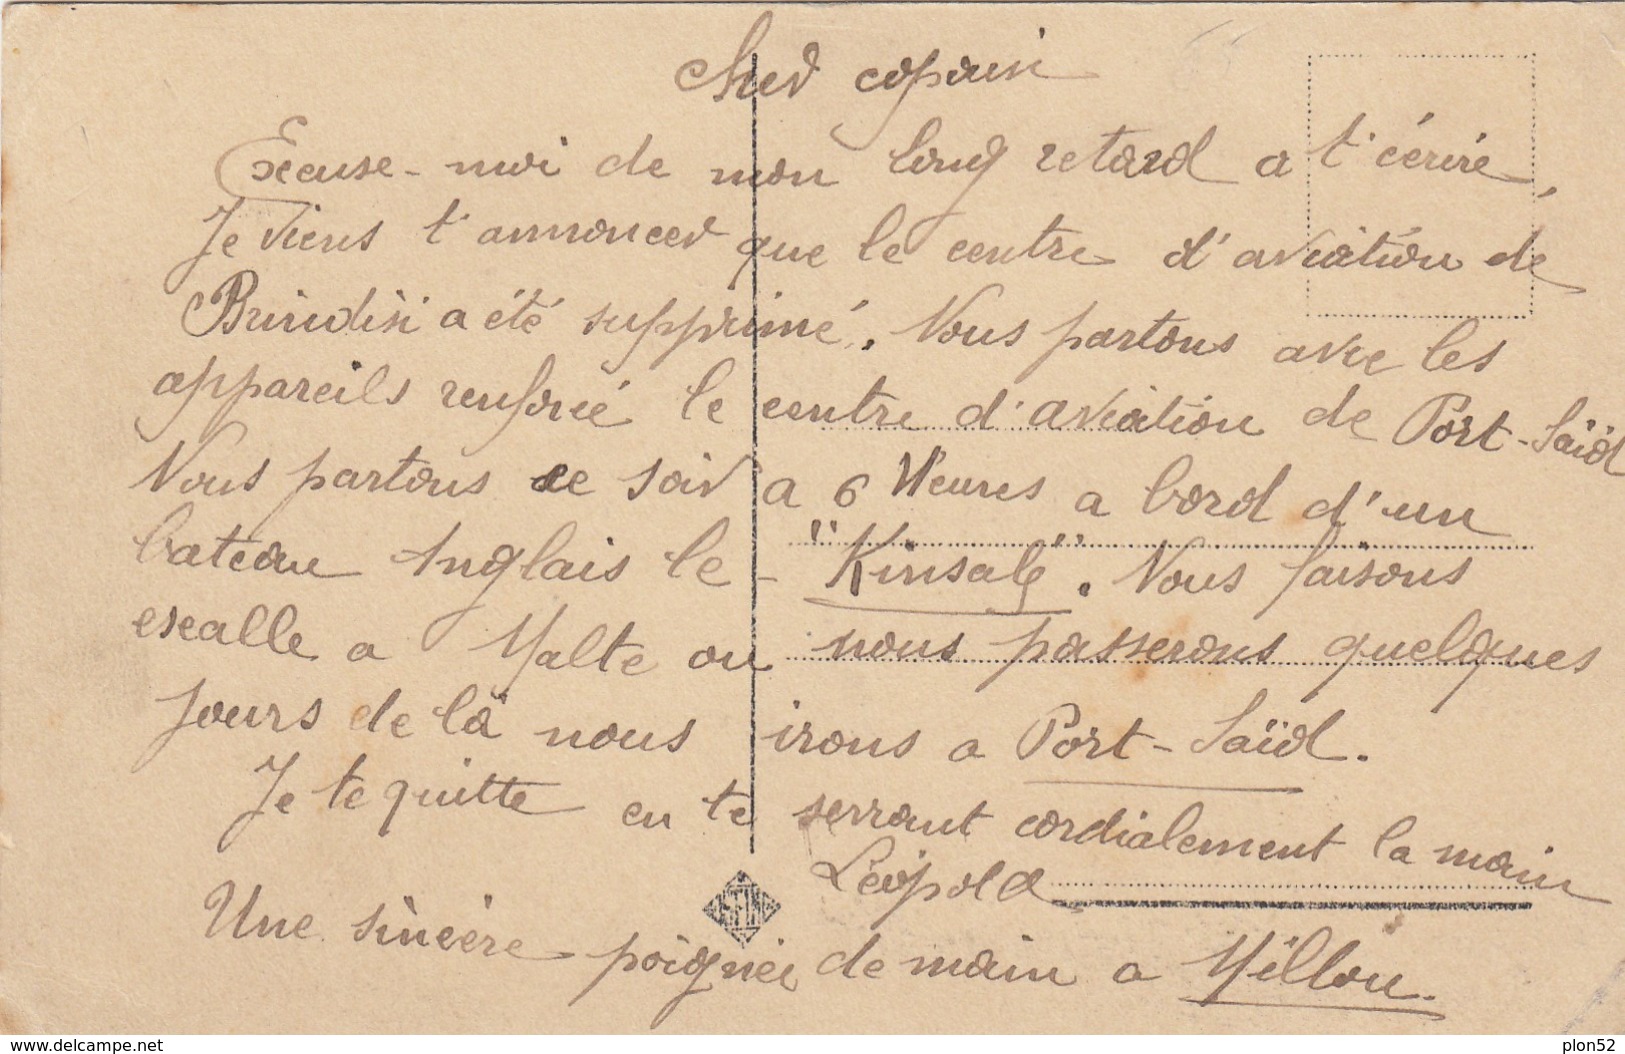 Cher copain
Excuse-moi de mon long retard a t'écrire,
Je viens t'annoncer que le centre d'aviation de
Brindisi a été supprimé. Nous partons avec les
appareils renforcé le centre d'aviation de Port-Saïd
Nous partons ce soir a 6 Heures a bord d'un
bateau Anglais le - "Kinsale". Nous faisons
escalle a Malte ou nous passerons quelques
jours de là nous irons a Port-Saïd.
Je te quitte en te serrant cordialement la main
Léopold
Une sincère poignée de main a Millou.
www.delcampe.net
plon52